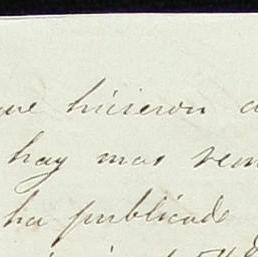 que hicieron a
hay mas rem
ha publicado